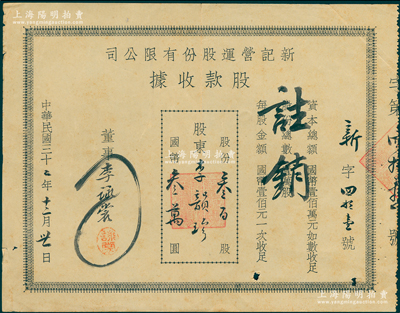 上海陽明拍賣
司公限有份股運營記新
據收款股
新字四拾壹號
資本總額 國幣壹佰萬元如數收足
每股金額 國幣壹佰元一次收足
註銷
股數 叁百 股
股東 李韻珍
國幣 叁萬 圓
董事 李
中華民國三十二年十二月卅一日
上海陽明拍賣